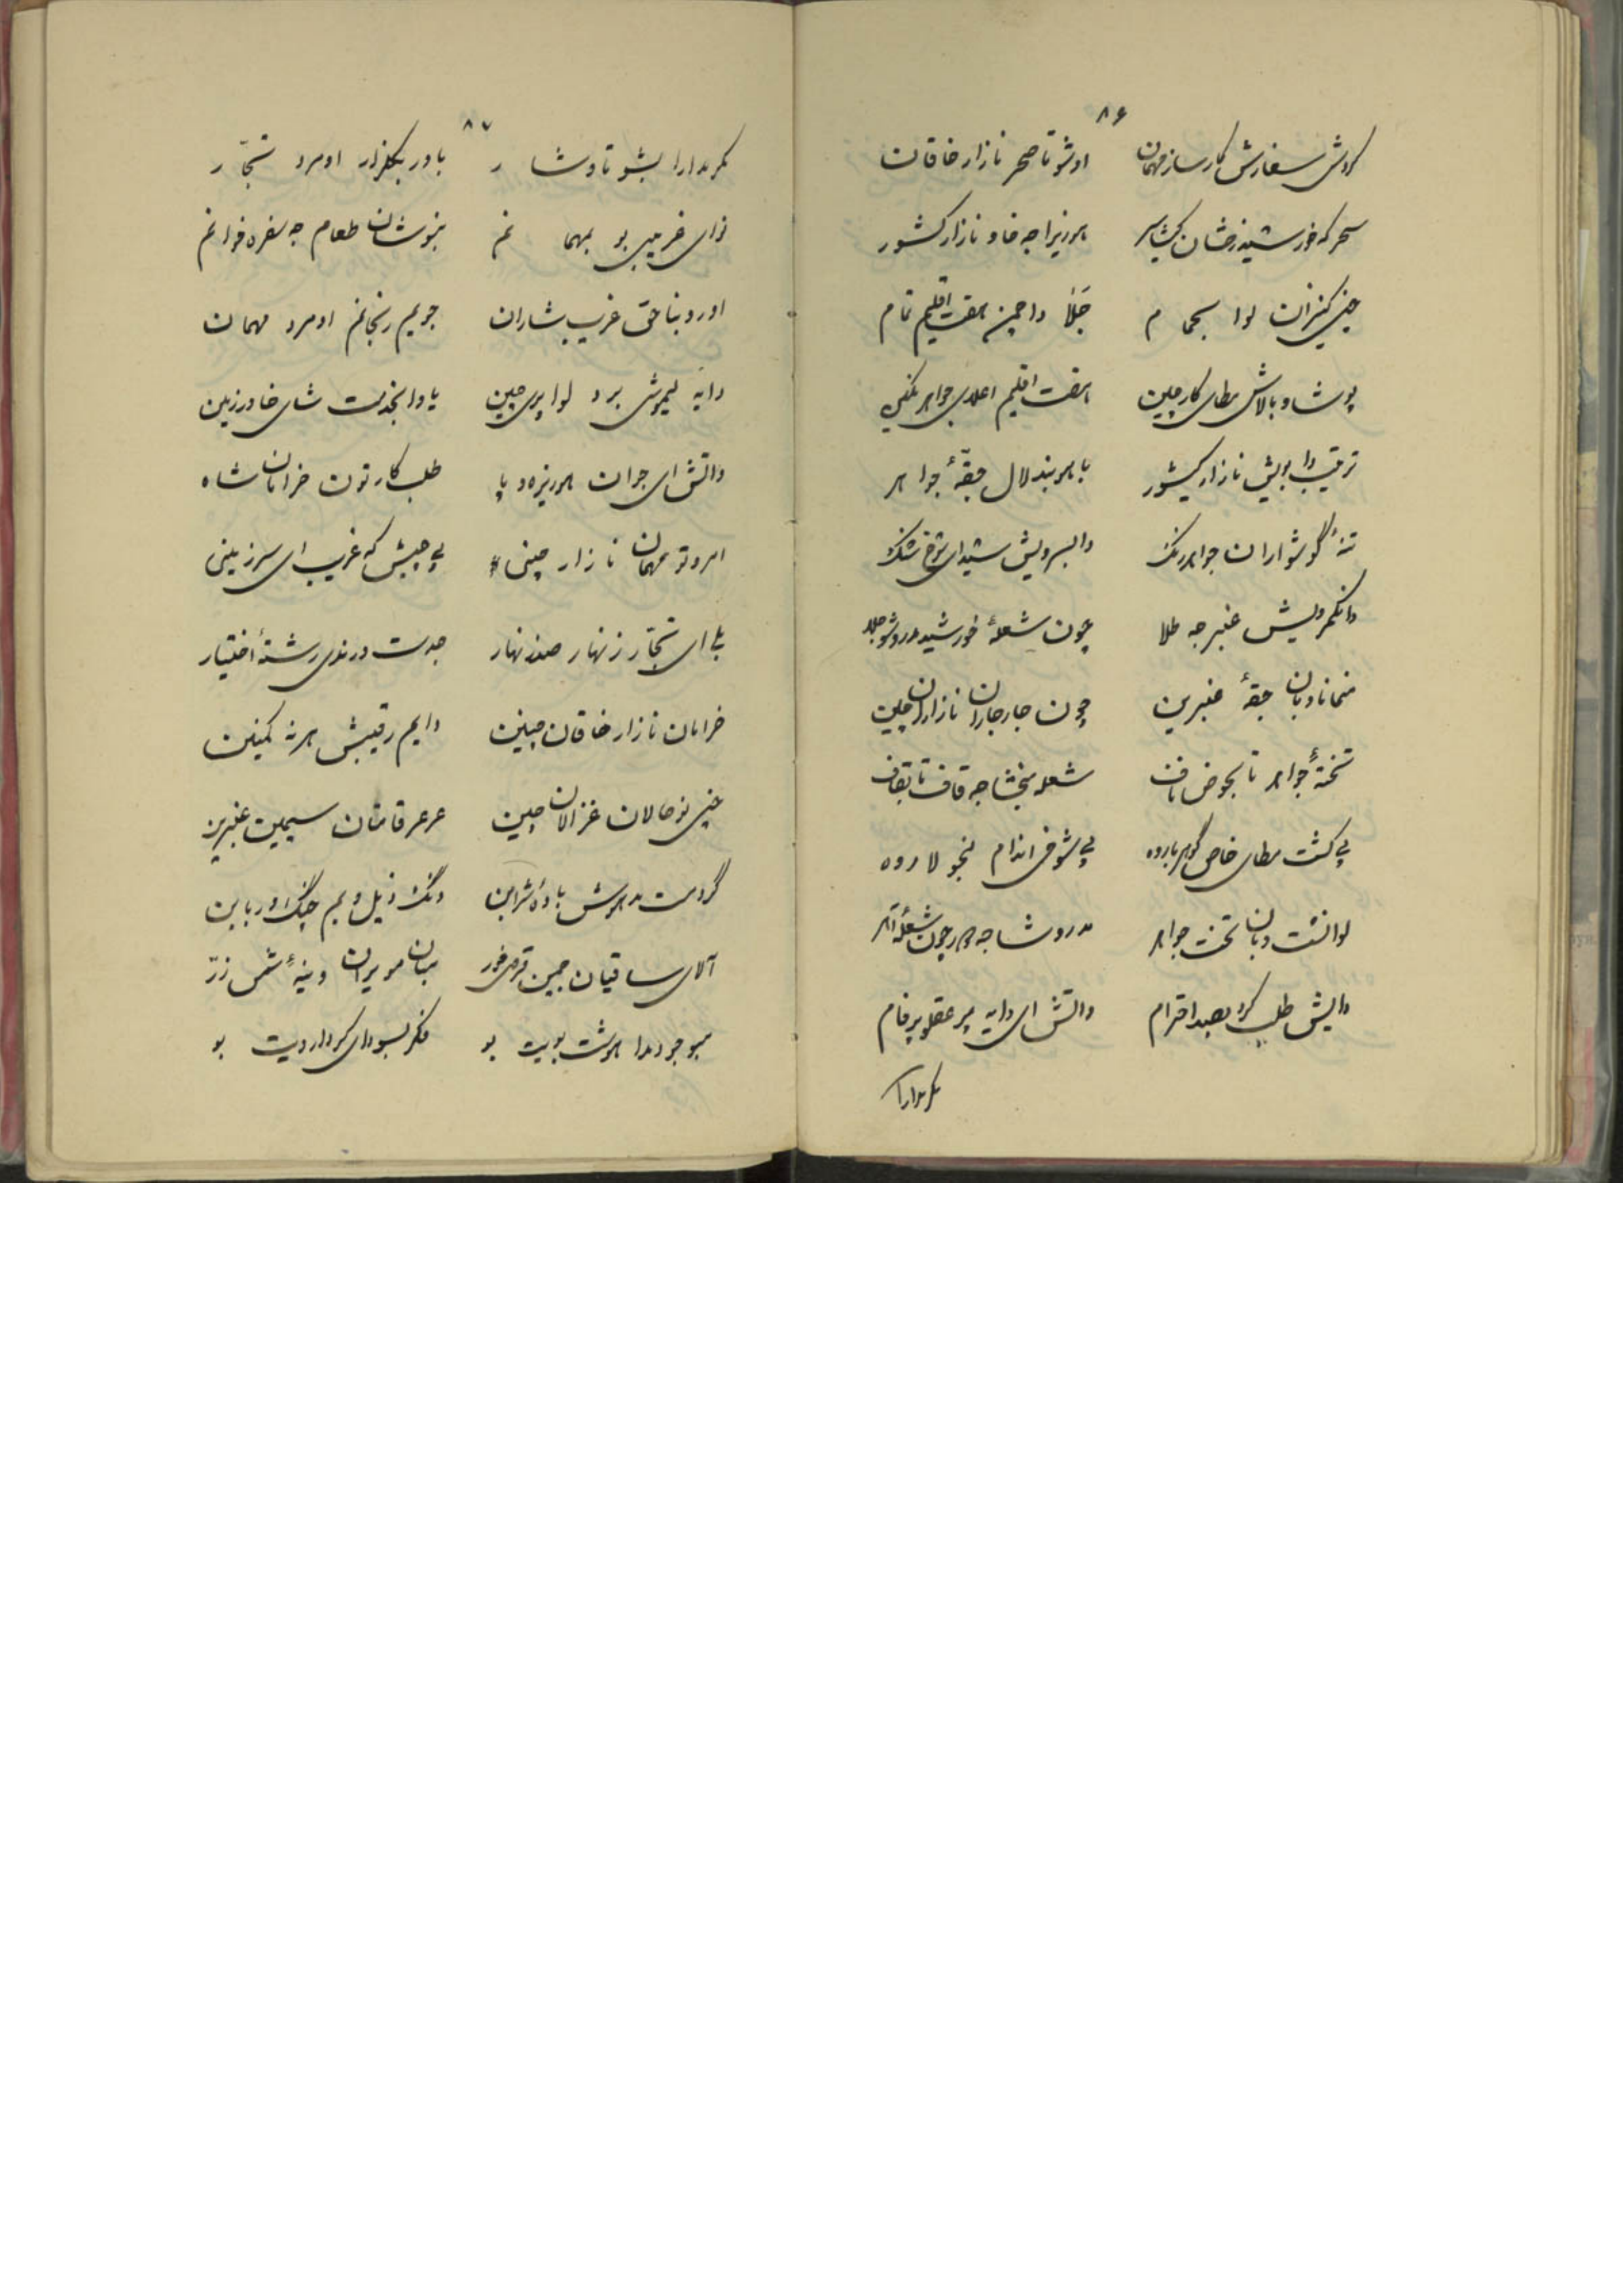 ۸۶
کردش سفارش کارساز مهمان اوشو تا صحر نازار خاقان
سحر که خورشید رخشان کیشا سر هریزا جه خاو نازار کشور
چنی کنیزان لوا بحمام جلا دا جمین هفت اقلیم تمام
پوشا و بالاش مطای کار چین هفت اقلیم اعلای جواهر نگین
ترتیب دا بویش نازار کیشور با هر بند لال جقهٔ جواهر
تنهٔ گوشواران جواهر رنگ دا بسرویش شیدای شوخ شنگ
دا نکمر ویش عنبر جه طلا چون شعلهٔ خورشید مدروشو جلا
منمانا وبان جقهٔ عنبرین چون جارجاران نازاران چین
تختهٔ جواهر تا بحوض ناف شعله مبخشا جه قاف تا بقاف
پی کشت مطای خاص گوهر باروه پی شوقی اندام لنجو لاروه
لوا نشت وبان تخت جواهر مدروشا جه دور چون شعلهٔ آهر
دایش طلب کرد بصد احترام واتش ای دایه پر عقل و پر فام
مکر مدارا
۸۷
مکر مدارا بشو تا وشار باور بگلزار او مرد تجار
نوای غریبی بو بمهمانم بنوشان طعام جه سفره خوانم
او رو بناحق غریب بشاران جویم رنجانم او مرد مهمان
دایه لیموش برد لوا پری چین یاوا بخدمت شای خاور زمین
واتش ای جوان هوریزه و پا طلب کار تون خرامان شاه
امرو تو مهمان نازار چینی پی چیش که غریب ای سرزمینی
بلی ای تجار زنهار صد زنهار جدست ورندی رشتهٔ اختیار
خرامان نازار خاقان چینن دایم رقیبش هر نه کمینن
چنی نوحالان غزالان چین عرعر قامتان سیمین عنبرین
گرد مست مدهوش بادهٔ شرابن دنگ ذیل و بم چنگ و ربابن
آلای ساقیان جمین قرص خور میان مویران وینهٔ شمس زر
مبو جو دما هوشت بویت بو فکر بسودای کردار ویت بو